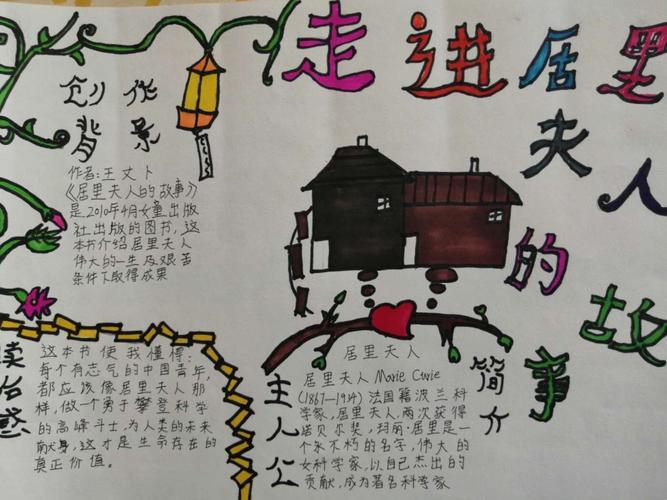 走进居里
夫人
的故
事
创作
背景
作者:王艾卜
《居里夫人的故事》
是2010年4月女童出版
社出版的图书,这
本书介绍居里夫人
伟大的一生及艰苦
条件下取得成果
读后感
这本书使我懂得:
每个有志气的中国青年,
都应该像居里夫人那
样,做一个勇于攀登科学
的高峰斗士,为人类的未来
献身,这才是生命存在的
真正价值。
主人公
简介
居里夫人
居里夫人Marie Curie
(1867—1934)法国籍波兰科
学家,居里夫人,两次获得
诺贝尔奖,玛丽·居里是一
个永不朽的名字,伟大的
女科学家,以自己杰出的
贡献,成为著名科学家